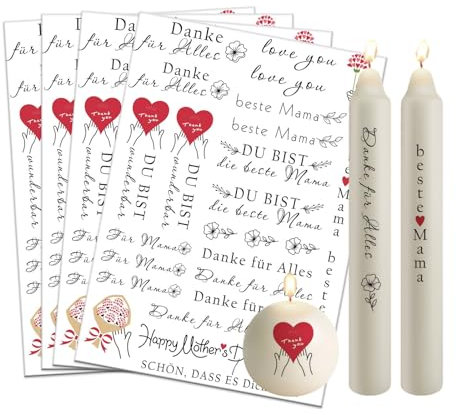 Danke
für Alles
Danke
für Alles
love you
love you
beste Mama
beste Mama
Thank you
Thank you
DU BIST
wunderbar
DU BIST
wunderbar
DU BIST
die beste Mama
DU BIST
die beste Mama
Für Mama
Für Mama
Für Mama
Danke für Alles
Danke für Alles
Danke für
Danke für
Happy Mother's D
SCHÖN, DASS ES DICH
für
für
für
für
für
für
wunderbar
wunderbar
wunderbar
Für
Für
Für
beste
Mama
Danke für Alles
beste Mama
Thank you